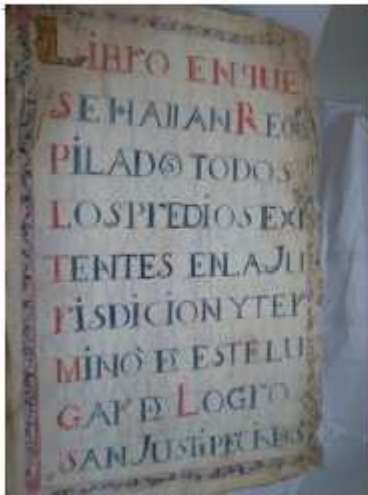 LIBRO EN QUE
SE HALLAN RECO
PILADOS TODOS
LOS PREDIOS EXIS
TENTES EN LA JU
RISDICION Y TER
MINO DE ESTE LU
GAR DE LOGRO
SAN JUSTO